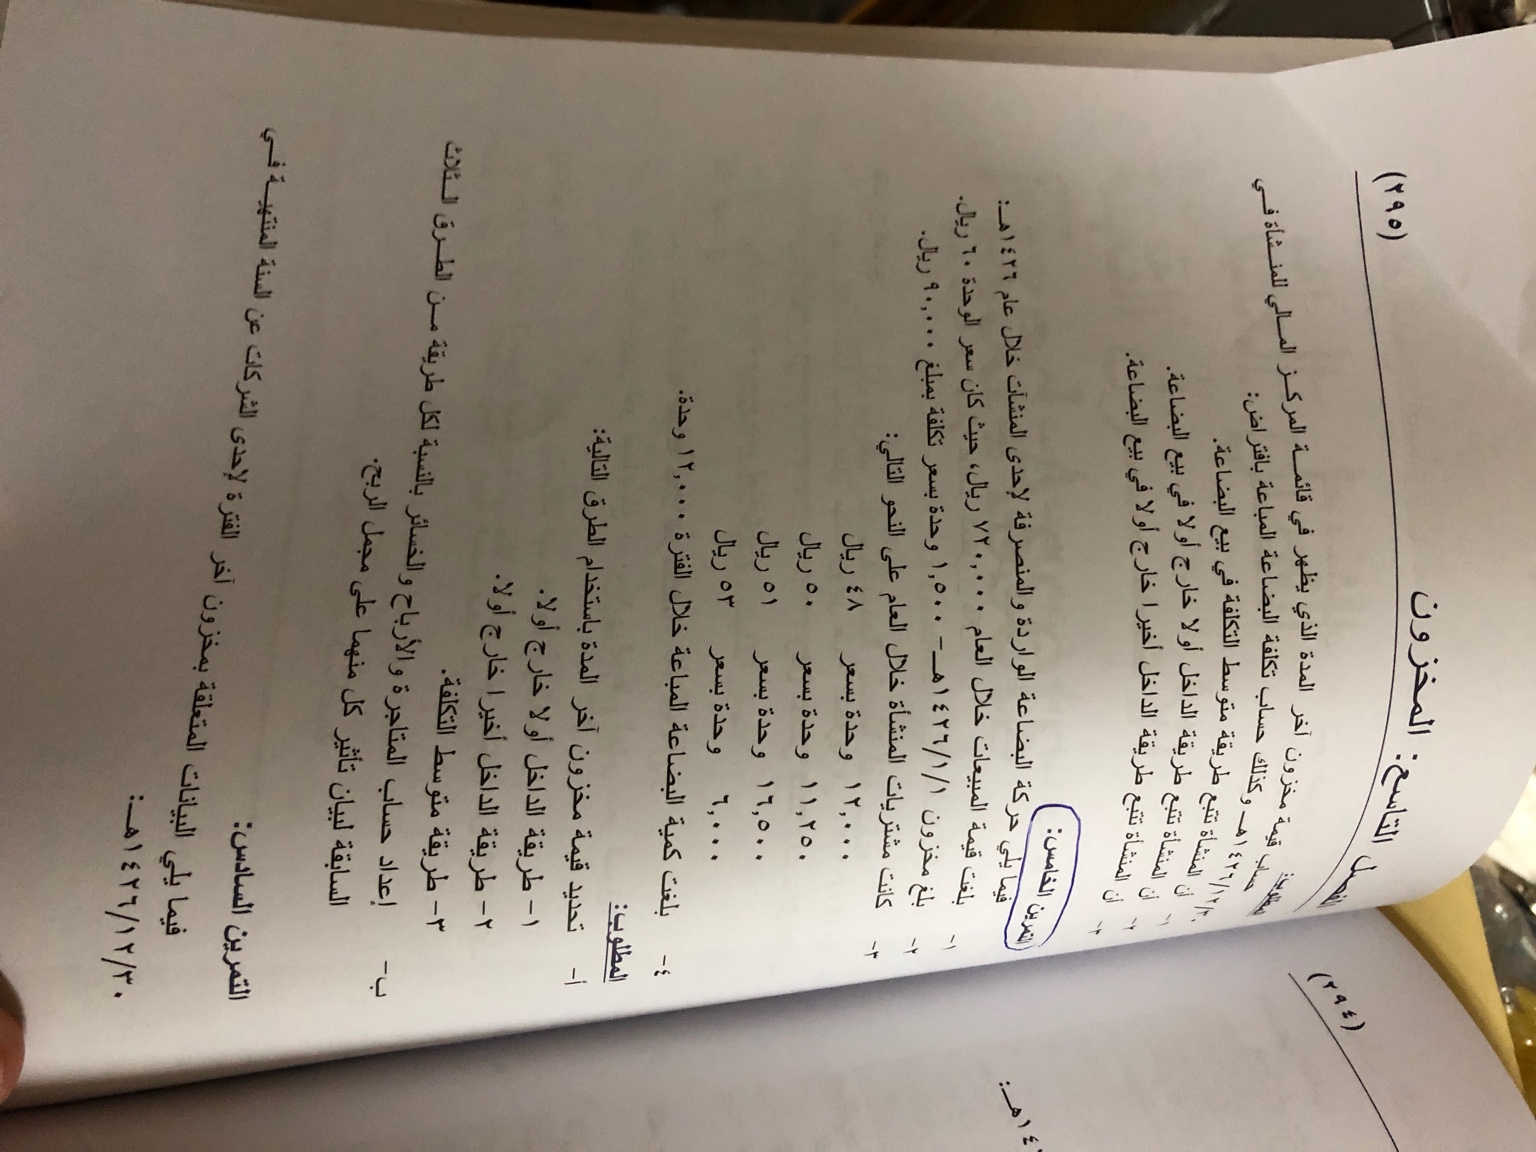 (٢٩٥)
الفصل التاسع: المخزون
المطلوب:
حساب قيمة مخزون آخر المدة الذي يظهر في قائمة المركز المالي للمنشأة في
١٤٢٦/١٢/٣٠هـ وكذلك حساب تكلفة البضاعة المباعة بافتراض:
١- أن المنشأة تتبع طريقة متوسط التكلفة في بيع البضاعة.
٢- أن المنشأة تتبع طريقة الداخل أولا خارج أولا في بيع البضاعة.
٣- أن المنشأة تتبع طريقة الداخل أخيرا خارج أولا في بيع البضاعة.
التمرين الخامس:
فيما يلي حركة البضاعة الواردة والمنصرفة لإحدى المنشآت خلال عام ١٤٢٦هـ:
١- بلغت قيمة المبيعات خلال العام ٧٢٠,٠٠٠ ريال، حيث كان سعر الوحدة ٦٠ ريال.
٢- بلغ مخزون ١٤٢٦/١/١هـ - ١,٥٠٠ وحدة بسعر تكلفة بمبلغ ٩٠,٠٠٠ ريال.
٣- كانت مشتريات المنشأة خلال العام على النحو التالي:
١٢,٠٠٠ وحدة بسعر ٤٨ ريال
١١,٢٥٠ وحدة بسعر ٥٠ ريال
١٦,٥٠٠ وحدة بسعر ٥١ ريال
٦,٠٠٠ وحدة بسعر ٥٣ ريال
٤- بلغت كمية البضاعة المباعة خلال الفترة ١٢,٠٠٠ وحدة.
المطلوب:
أ- تحديد قيمة مخزون آخر المدة باستخدام الطرق التالية:
١- طريقة الداخل أولا خارج أولا.
٢- طريقة الداخل أخيرا خارج أولا.
٣- طريقة متوسط التكلفة.
ب- إعداد حساب المتاجرة والأرباح والخسائر بالنسبة لكل طريقة من الطرق الثلاث
السابقة لبيان تأثير كل منهما على مجمل الربح.
التمرين السادس:
فيما يلي البيانات المتعلقة بمخزون آخر الفترة لإحدى الشركات عن السنة المنتهية في
١٤٢٦/١٢/٣٠هـ:
(٢٩٤)